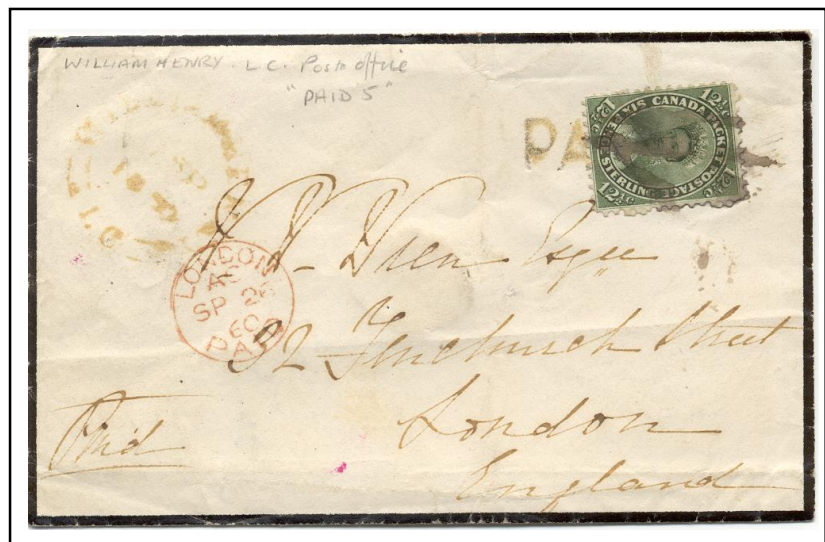 WILLIAM HENRY. L.C. Post office
"PAID 5"
PA
12½c CANADA PACKET POSTAGE 12½c
12½c SIX PENCE STERLING 12½c
LONDON
SP 2
60
PAID
Esqre
32 Fenchurch Street
London
England
Paid